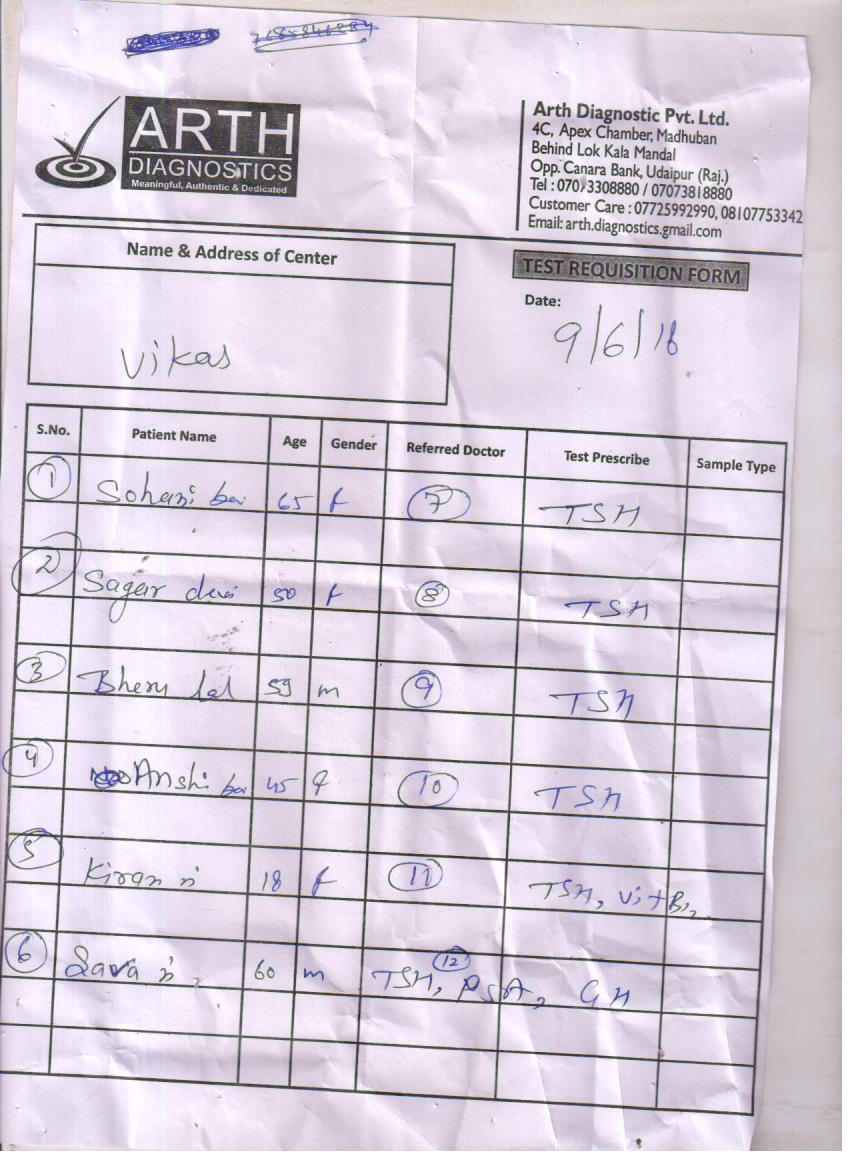 ARTH
DIAGNOSTICS
Meaningful, Authentic & Dedicated
Arth Diagnostic Pvt. Ltd.
4C, Apex Chamber, Madhuban
Behind Lok Kala Mandal
Opp. Canara Bank, Udaipur (Raj.)
Tel : 07073308880 / 07073818880
Customer Care : 07725992990, 08107753342
Email: arth.diagnostics.gmail.com
Name & Address of Center
Vikas
TEST REQUISITION FORM
Date:
9/6/18
S.No. Patient Name Age Gender Referred Doctor Test Prescribe Sample Type
1 Sohani bai 65 f 7 TSH
2 Sagar devi 50 f 8 TSH
3 Bheru lal 59 m 9 TSH
4 Anshi bai 45 f 10 TSH
5 Kiran 18 f 11 TSH, Vit B12
6 Sava 60 m 12 TSH, PSA, GH